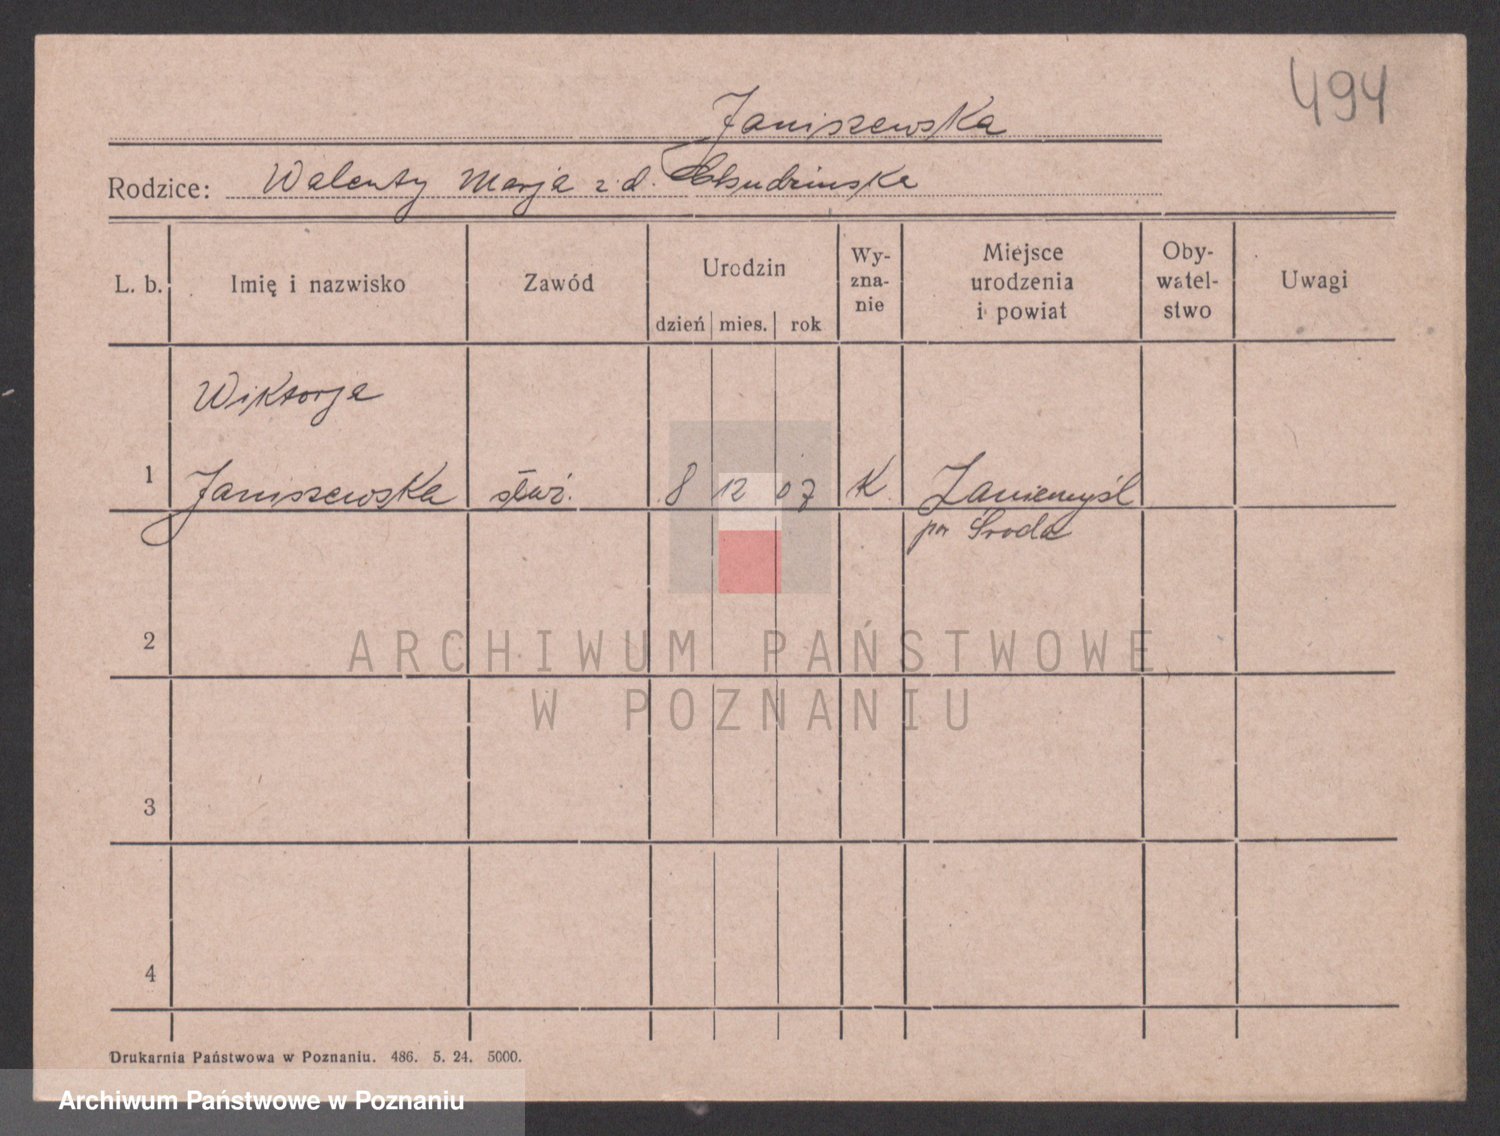 494
Janiszewska
Rodzice: Walenty Marja z d.
L. b. Imię i nazwisko Zawód Urodzin dzień mies. rok Wyznanie Miejsce urodzenia i powiat Obywatelstwo Uwagi
Wiktorja
1 Janiszewska służ. 8 12 07 K. Zaniemyśl
pow Środa
2
ARCHIWUM PAŃSTWOWE
W POZNANIU
3
4
Drukarnia Państwowa w Poznaniu. 486. 5. 24. 5000.
Archiwum Państwowe w Poznaniu